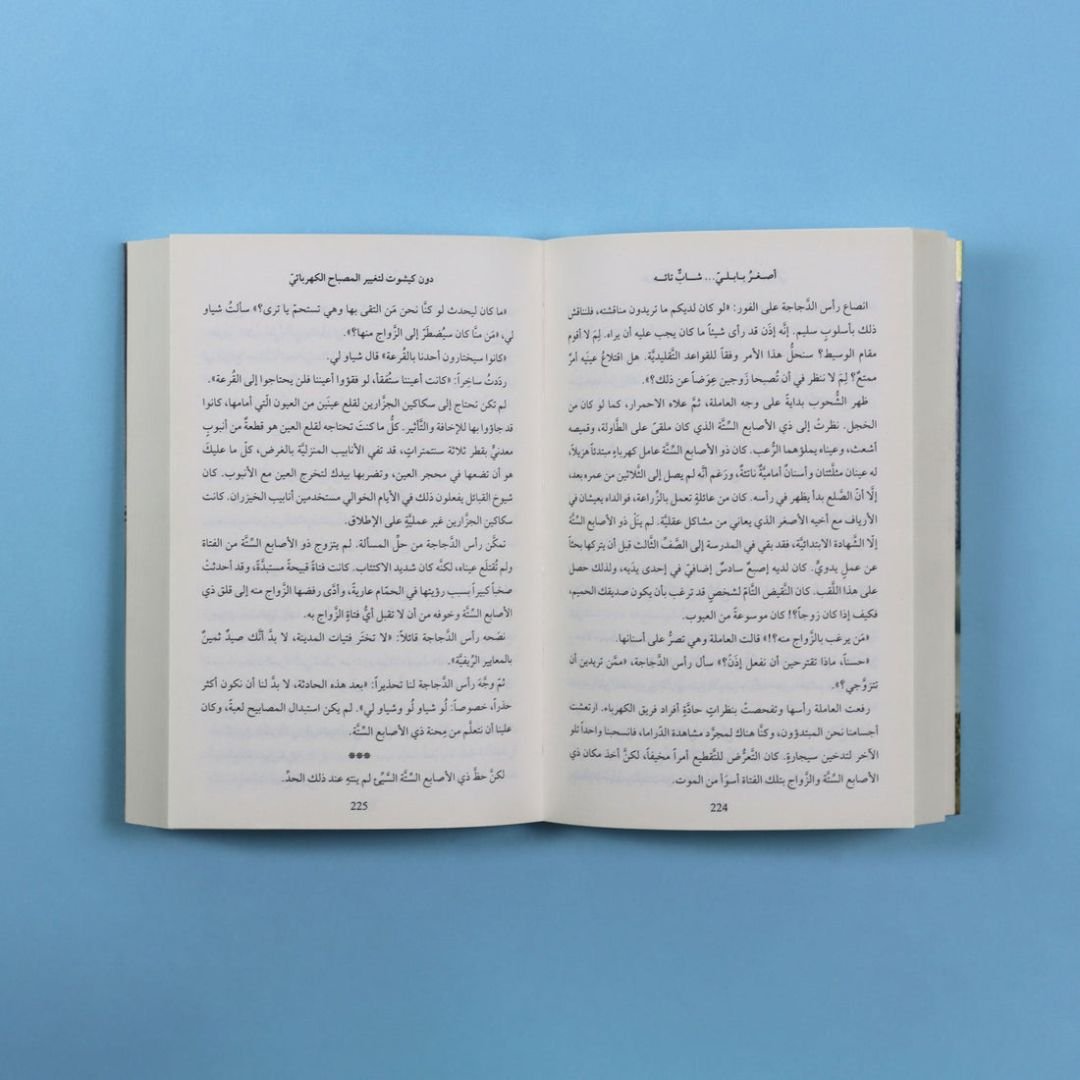 أصغرُ بـابـلـيّ... شـــابٌّ تائـــه
انصاع رأس الدَّجاجة على الفور: «لو كان لديكم ما تريدون مناقشته، فلنناقش
ذلك بأسلوبٍ سليم. إنَّه إذَن قد رأى شيئاً ما كان يجب عليه أن يراه. لِمَ لا أقوم
مقام الوسيط؟ سنحلُّ هذا الأمر وفقاً للقواعد التَّقليديَّة. هل اقتلاعُ عينَيه أمرٌ
ممتعٌ؟ لِمَ لا ننظر في أن تُصبحا زَوجين عِوَضاً عن ذلك؟».
ظهر الشُّحوب بدايةً على وجه العاملة، ثمَّ علاه الاحمرار، كما لو كان من
الخجل. نظرتُ إلى ذي الأصابع السِّتَّة الذي كان ملقىً على الطَّاولة، وقميصه
أشعث، وعيناه يملؤهما الرُّعب. كان ذو الأصابع السِّتَّة عامل كهرباءٍ مبتدئاً هزيلاً،
له عينان مثلَّثتان وأسنانٌ أماميَّةٌ ناتئةٌ، ورَغم أنَّه لم يصل إلى الثَّلاثين من عمره بعد،
إلَّا أنّ الصَّلع بدأ يظهر في رأسه. كان من عائلةٍ تعمل بالزِّراعة، فوالداه يعيشان في
الأرياف مع أخيه الأصغر الذي يعاني من مشاكل عقليَّة. لم ينَلْ ذو الأصابع السِّتَّة
إلّا الشَّهادة الابتدائيَّة، فقد بقي في المدرسة إلى الصَّفِّ الثَّالث قبل أن يتركها بحثاً
عن عملٍ يدويٍّ. كان لديه إصبعٌ سادسٌ إضافيٌّ في إحدى يدَيه، ولذلك حصل
على هذا اللَّقب. كان النَّقيض التَّامَّ لشخصٍ قد ترغب بأن يكون صديقك الحميم،
فكيف إذا كان زوجاً؟! كان موسوعةً من العيوب.
«مَن يرغب بالزَّواج منه؟!» قالت العاملة وهي تصرُّ على أسنانها.
«حسناً، ماذا تقترحين أن نفعل إذَنْ؟» سأل رأس الدَّجاجة، «ممَّن تريدين أن
تتزوَّجي؟».
رفعت العاملة رأسها وتفحصتْ بنظراتٍ حادَّةٍ أفراد فريق الكهرباء. ارتعشت
أجسامنا نحن المبتدؤون، وكنَّا هناك لمجرَّد مشاهدة الدِّراما، فانسحبنا واحداً تلو
الآخر لتدخين سيجارةٍ. كان التَّعرُّض للتَّقطيع أمراً مخيفاً، لكنَّ أخذ مكان ذي
الأصابع السِّتَّة والزَّواج بتلك الفتاة أسوَأ من الموت.
224
دون كيشوت لتغيير المصباح الكهربائيّ
«ما كان ليحدث لو كنَّا نحن مَن التقى بها وهي تستحمّ يا ترى؟» سألتُ شياو
لي، «مَن منَّا كان سيُضطَرّ إلى الزَّواج منها؟».
«كانوا سيختارون أحدنا بالقُرعة» قال شياو لي.
ردَدتُ ساخِراً: «كانت أعيننا ستُفقأ، لو فقؤوا أعيننا فلن يحتاجوا إلى القُرعة».
لم تكن تحتاج إلى سكاكين الجزَّارين لقلع عينَين من العيون الّتي أمامها، كانوا
قد جاؤوا بها للإخافة والتَّأثير. كلُّ ما كنتَ تحتاجه لقلع العين هو قطعةٌ من أنبوبٍ
معدنيٍّ بقطر ثلاثة سنتمترات، قد تفي الأنابيب المنزليَّة بالغرض، كلّ ما عليكَ
هو أن تضعها في محجر العين، وتضربها بيدك لتخرج العين مع الأنبوب. كان
شيوخ القبائل يفعلون ذلك في الأيام الخوالي مستخدمين أنابيب الخيزران. كانت
سكاكين الجزَّارين غير عمليَّةٍ على الإطلاق.
تمكَّن رأس الدَّجاجة من حلِّ المسألة. لم يتزوج ذو الأصابع السِّتَّة من الفتاة
ولم تُقتلَع عيناه، لكنَّه كان شديد الاكتئاب. كانت فتاةً قبيحةً مستبدَّةً، وقد أحدثتْ
صخباً كبيراً بسبب رؤيتها في الحمّام عاريةً، وأدَّى رفضها الزَّواج منه إلى قلق ذي
الأصابع السِّتَّة وخوفه من أن لا تقبل أيُّ فتاةٍ الزَّواج به.
نصَحه رأس الدَّجاجة قائلاً: «لا تختَر فتيات المدينة، لا بدَّ أنَّك صيدٌ ثمينٌ
بالمعايير الرِّيفيَّة».
ثمّ وجَّه رأس الدَّجاجة لنا تحذيراً: «بعد هذه الحادثة، لا بدَّ لنا أن نكون أكثر
حذراً، خصوصاً: لُو شياو لُو وشياو لي». لم يكن استبدال المصابيح لعبةً، وكان
علينا أن نتعلَّم من مِحنة ذي الأصابع السِّتَّة.
***
لكنَّ حظَّ ذي الأصابع السِّتَّة السَّيِّئ لم ينتهِ عند ذلك الحدِّ.
225